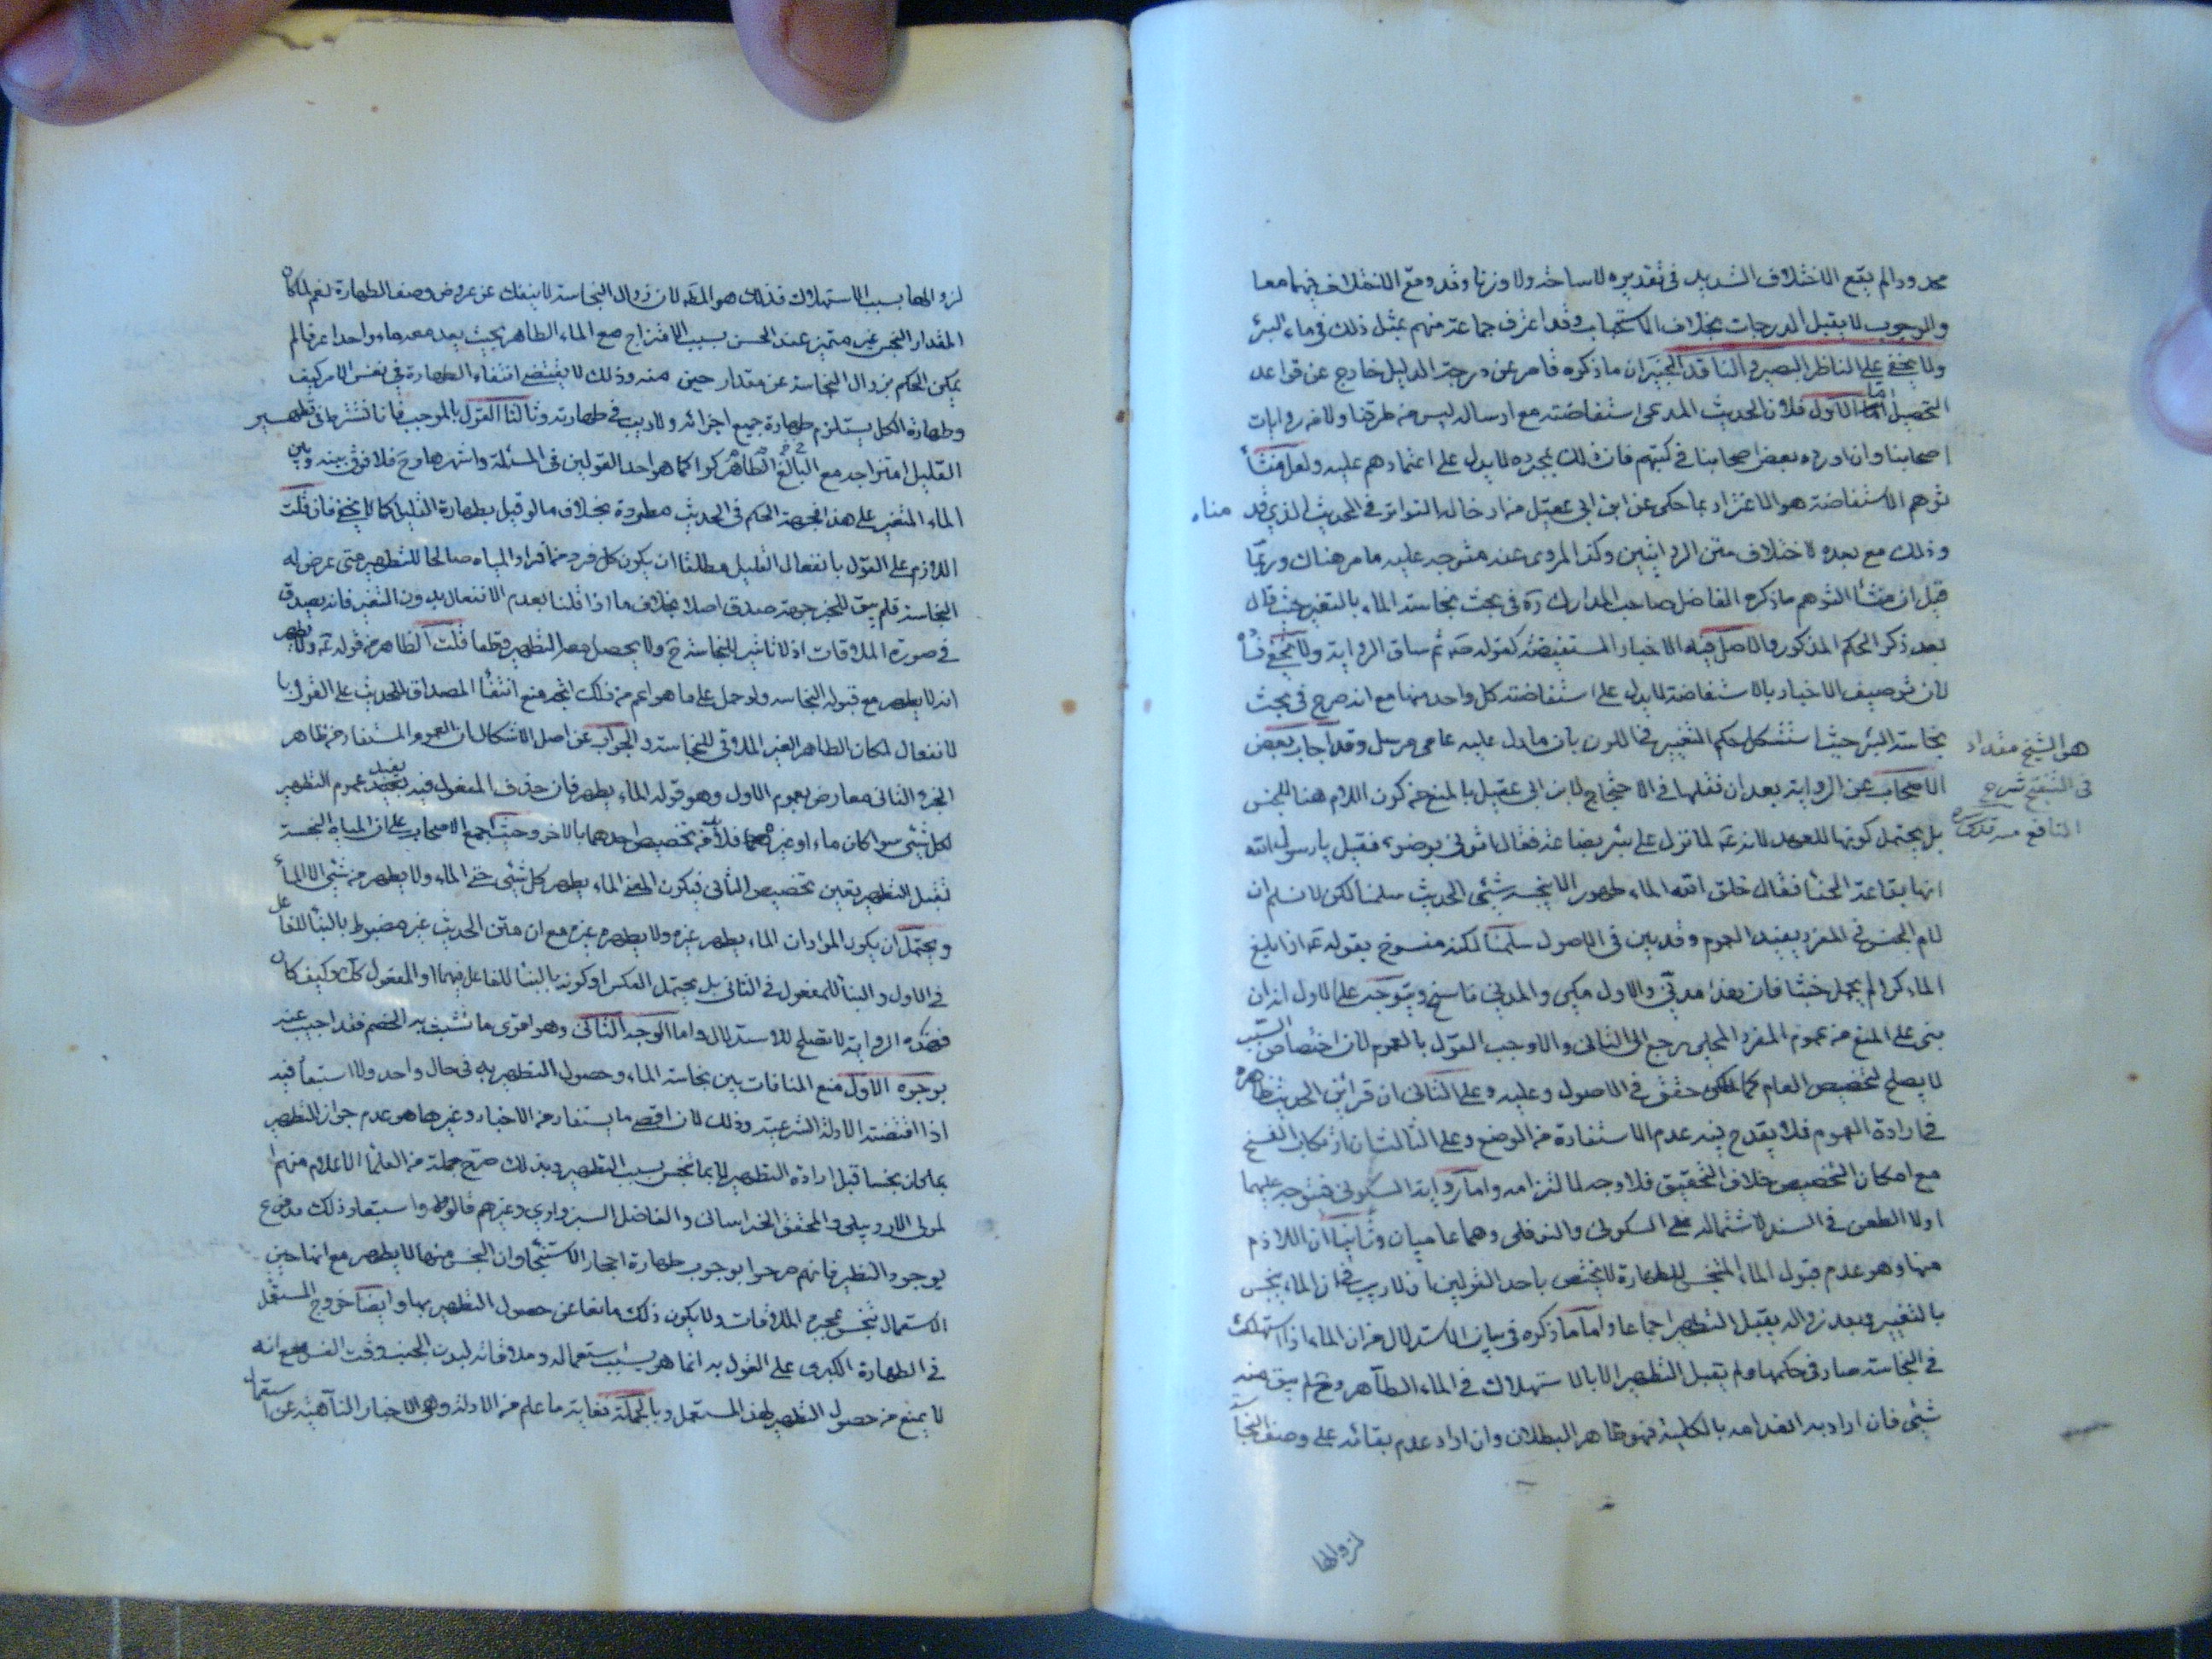 محدودا لم يقع الاختلاف الشديد في تقديره لا ساحة ولا وزنا وقد وقع الاختلاف فيهما معا
والوجوب لا يقبل الدرجات بخلاف الاستحباب وقد اعترف جماعة منهم بمثل ذلك في ماء البئر
ولا يخفى على الناظر البصير والناقد الخبير ان ما ذكروه قاصر عن درجة الدليل خارج عن قواعد
التحصيل اما الاول فلان الحديث المدعى استفاضته مع ارساله ليس من طرقنا ولا من روايات
اصحابنا وان اورده بعض اصحابنا في كتبهم فان ذلك بمجرده لا يدل على اعتمادهم عليه ولعل منشأ
توهم الاستفاضة هو الاغترار بما حكى عن ابن ابي عقيل من ادخاله التواتر في الحديث الذي قد مناه
وذلك مع بعده لاختلاف متن الروايتين وكذا المروي عنه متوجه عليه ما مر هناك وربما
قيل ان منشأ التوهم ما ذكره الفاضل صاحب المدارك ره في بحث نجاسة الماء بالتغير حيث قال
بعد ذكر الحكم المذكور والاصل فيه الاخبار المستفيضة كقوله ص ثم ساق الرواية ولا يخفى
لان توصيف الاخبار بالاستفاضة لا يدل على استفاضة كل واحد منها مع انه صرح في بحث
نجاسة البئر حيث استشكل حكم التغيير في اللون بان ما دل عليه عامي مرسل وقد اجاب بعض
هو الشيخ مقداد
في التنقيح شرح
النافع منه
الاصحاب عن الرواية بعد ان نقلها في الاحتجاج لابن ابي عقيل بالمنع من كون اللام هنا للجنس
بل يحتمل كونها للعهد لانه ع لما نزل على بئر بضاعة فقال ائتوني بوضوء فقيل يا رسول الله
انها بقاعة الخنا فقال خلق الله الماء طهورا لا ينجسه شيء الحديث سلمنا لكن لا نسلم ان
لام الجنس في المفرد يفيد العموم وقد بين في الاصول سلمنا لكنه منسوخ بقوله ع اذا بلغ
الماء كرا لم يحمل خبثا فان هذا مدني والاول مكي والمدني ناسخ ويتوجه على الاول انه ان
بنى على المنع من عموم المفرد المحلى رجع الى الثاني والا وجب القول بالعموم لان اختصاص السبب
لا يصلح لتخصيص العام كما حقق في الاصول وعليه وعلى الثاني ان قرائن الحديث ظاهرة
في ارادة العموم فلا يقدح فيه عدم الاستفادة من الوضع وعلى الثالث ان ارتكاب النسخ
مع امكان التخصيص خلاف التحقيق فلا وجه لالتزامه واما رواية السكوني فيتوجه عليهما
اولا الطعن في السند لاشتماله على السكوني والنوفلي وهما عاميان وثانيا ان اللازم
منها وهو عدم قبول الماء المنجس للطهارة لا يختص باحد القولين اذ لا ريب في ان الماء ينجس
بالتغيير وبعد زواله يقبل التطهير اجماعا واما ما ذكره في بيان الاستدلال من ان الماء اذا استهلكت
في النجاسة صار في حكمها ولم يقبل التطهير الا بالاستهلاك في الماء الطاهر وح لم يبق منه
شيء فان اراد به انعدامه بالكلية فهو ظاهر البطلان وان اراد عدم بقائه على وصف النجا
لزوالها
لزوالها بسبب الاستهلاك فذلك هو المط لان زوال النجاسة لا ينفك عن عروض وصف الطهارة نعم لما كان
المقدار النجس غير متميز عند الحس بسبب الامتزاج مع الماء الطاهر بحيث يعد معه ماء واحدا عرفا لم
يمكن الحكم بزوال النجاسة عن مقدار معين منه وذلك لا يقتضي انتفاء الطهارة في نفس الامر كيف
وطهارة الكل يستلزم طهارة جميع اجزائه ولا ريب في طهارته وثالثا القول بالموجب فانا نشترط في تطهير
القليل امتزاجه مع البالغ الطاهر كرا كما هو احد القولين في المسئلة واشهرهما وح فلا فرق بينه وبين
الماء المتغير على هذا فجهة الحكم في الحديث مطردة بخلاف ما لو قيل بطهارة القليل كما لا يخفى فان قلت
اللازم على القول بانفعال القليل مطلقا ان يكون كل فرد من افراد المياه صالحا للتطهير متى عرض له
النجاسة فلم يبق للخبر جهة صدق اصلا بخلاف ما اذا قلنا بعدم الانفعال بدون التغير فانه يصدق
في صورة الملاقات اذ لا تاثير للنجاسة ح ولا يحصل معه التطهير قطعا قلت الظاهر من قوله ع ولا يطهر
انه لا يطهر مع قبوله النجاسة ولو حمل على ما هو اعم من ذلك اتجه منع انتفاء المصداق للحديث على القول با
لانفعال لمكان الطاهر الغير الملاقي للنجاسة والجواب عن اصل الاشكال ان العموم المستفاد من ظاهر
الجزء الثاني معارض بعموم الاول وهو قوله الماء يطهر فان حذف المفعول فيه يفيد عموم التطهير
لكل شيء سواء كان ماء او غيره فلا بد من تخصيص احدهما بالاخر وحيث اجمع الاصحاب على ان المياه النجسة
تقبل التطهير تعين تخصيص الثاني فيكون المعنى الماء يطهر كل شيء حتى الماء ولا يطهر من شيء الا الماء
ويحتمل ان يكون المراد ان الماء يطهر غيره ولا يطهره غيره مع ان متن الحديث غير مضبوط بالبناء للفاعل
في الاول والبناء للمفعول في الثاني بل يحتمل العكس او كونه بالبناء للفاعل فيهما او المفعول كك وكيف كان
فهذه الرواية لا تصلح للاستدلال واما الوجه الثاني وهو اقوى ما تشبث به الخصم فقد اجيب عنه
بوجوه الاول منع المنافات بين نجاسة الماء وحصول التطهير به في حال واحد ولا استبعاد فيه
اذا اقتضته الادلة الشرعية وذلك لان اقصى ما يستفاد من الاخبار وغيرها هو عدم جواز التطهير
بما كان نجسا قبل ارادة التطهير لا بما نجس بسبب التطهير وبذلك صرح جملة من العلماء الاعلام منهم ا
لمولى الاردبيلي والمحقق الخراساني والفاضل السبزواري وغيرهم قالوا واستبعاد ذلك مدفوع
بوجود النظير فانهم صرحوا بوجوب طهارة احجار الاستنجاء وان النجس منها لا يطهر مع انها حين
الاستعمال تنجس بمجرد الملاقات ولا يكون ذلك مانعا عن حصول التطهير بها وايضا خروج المستعمل
في الطهارة الكبرى على القول به انما هو بسبب استعماله وملاقاته لبدن الجنب وقت الغسل مع انه
لا يمنع من حصول التطهير لهذا المستعمل وبالجملة فغاية ما علم من الادلة وهي الاخبار الناهية عن استعمال